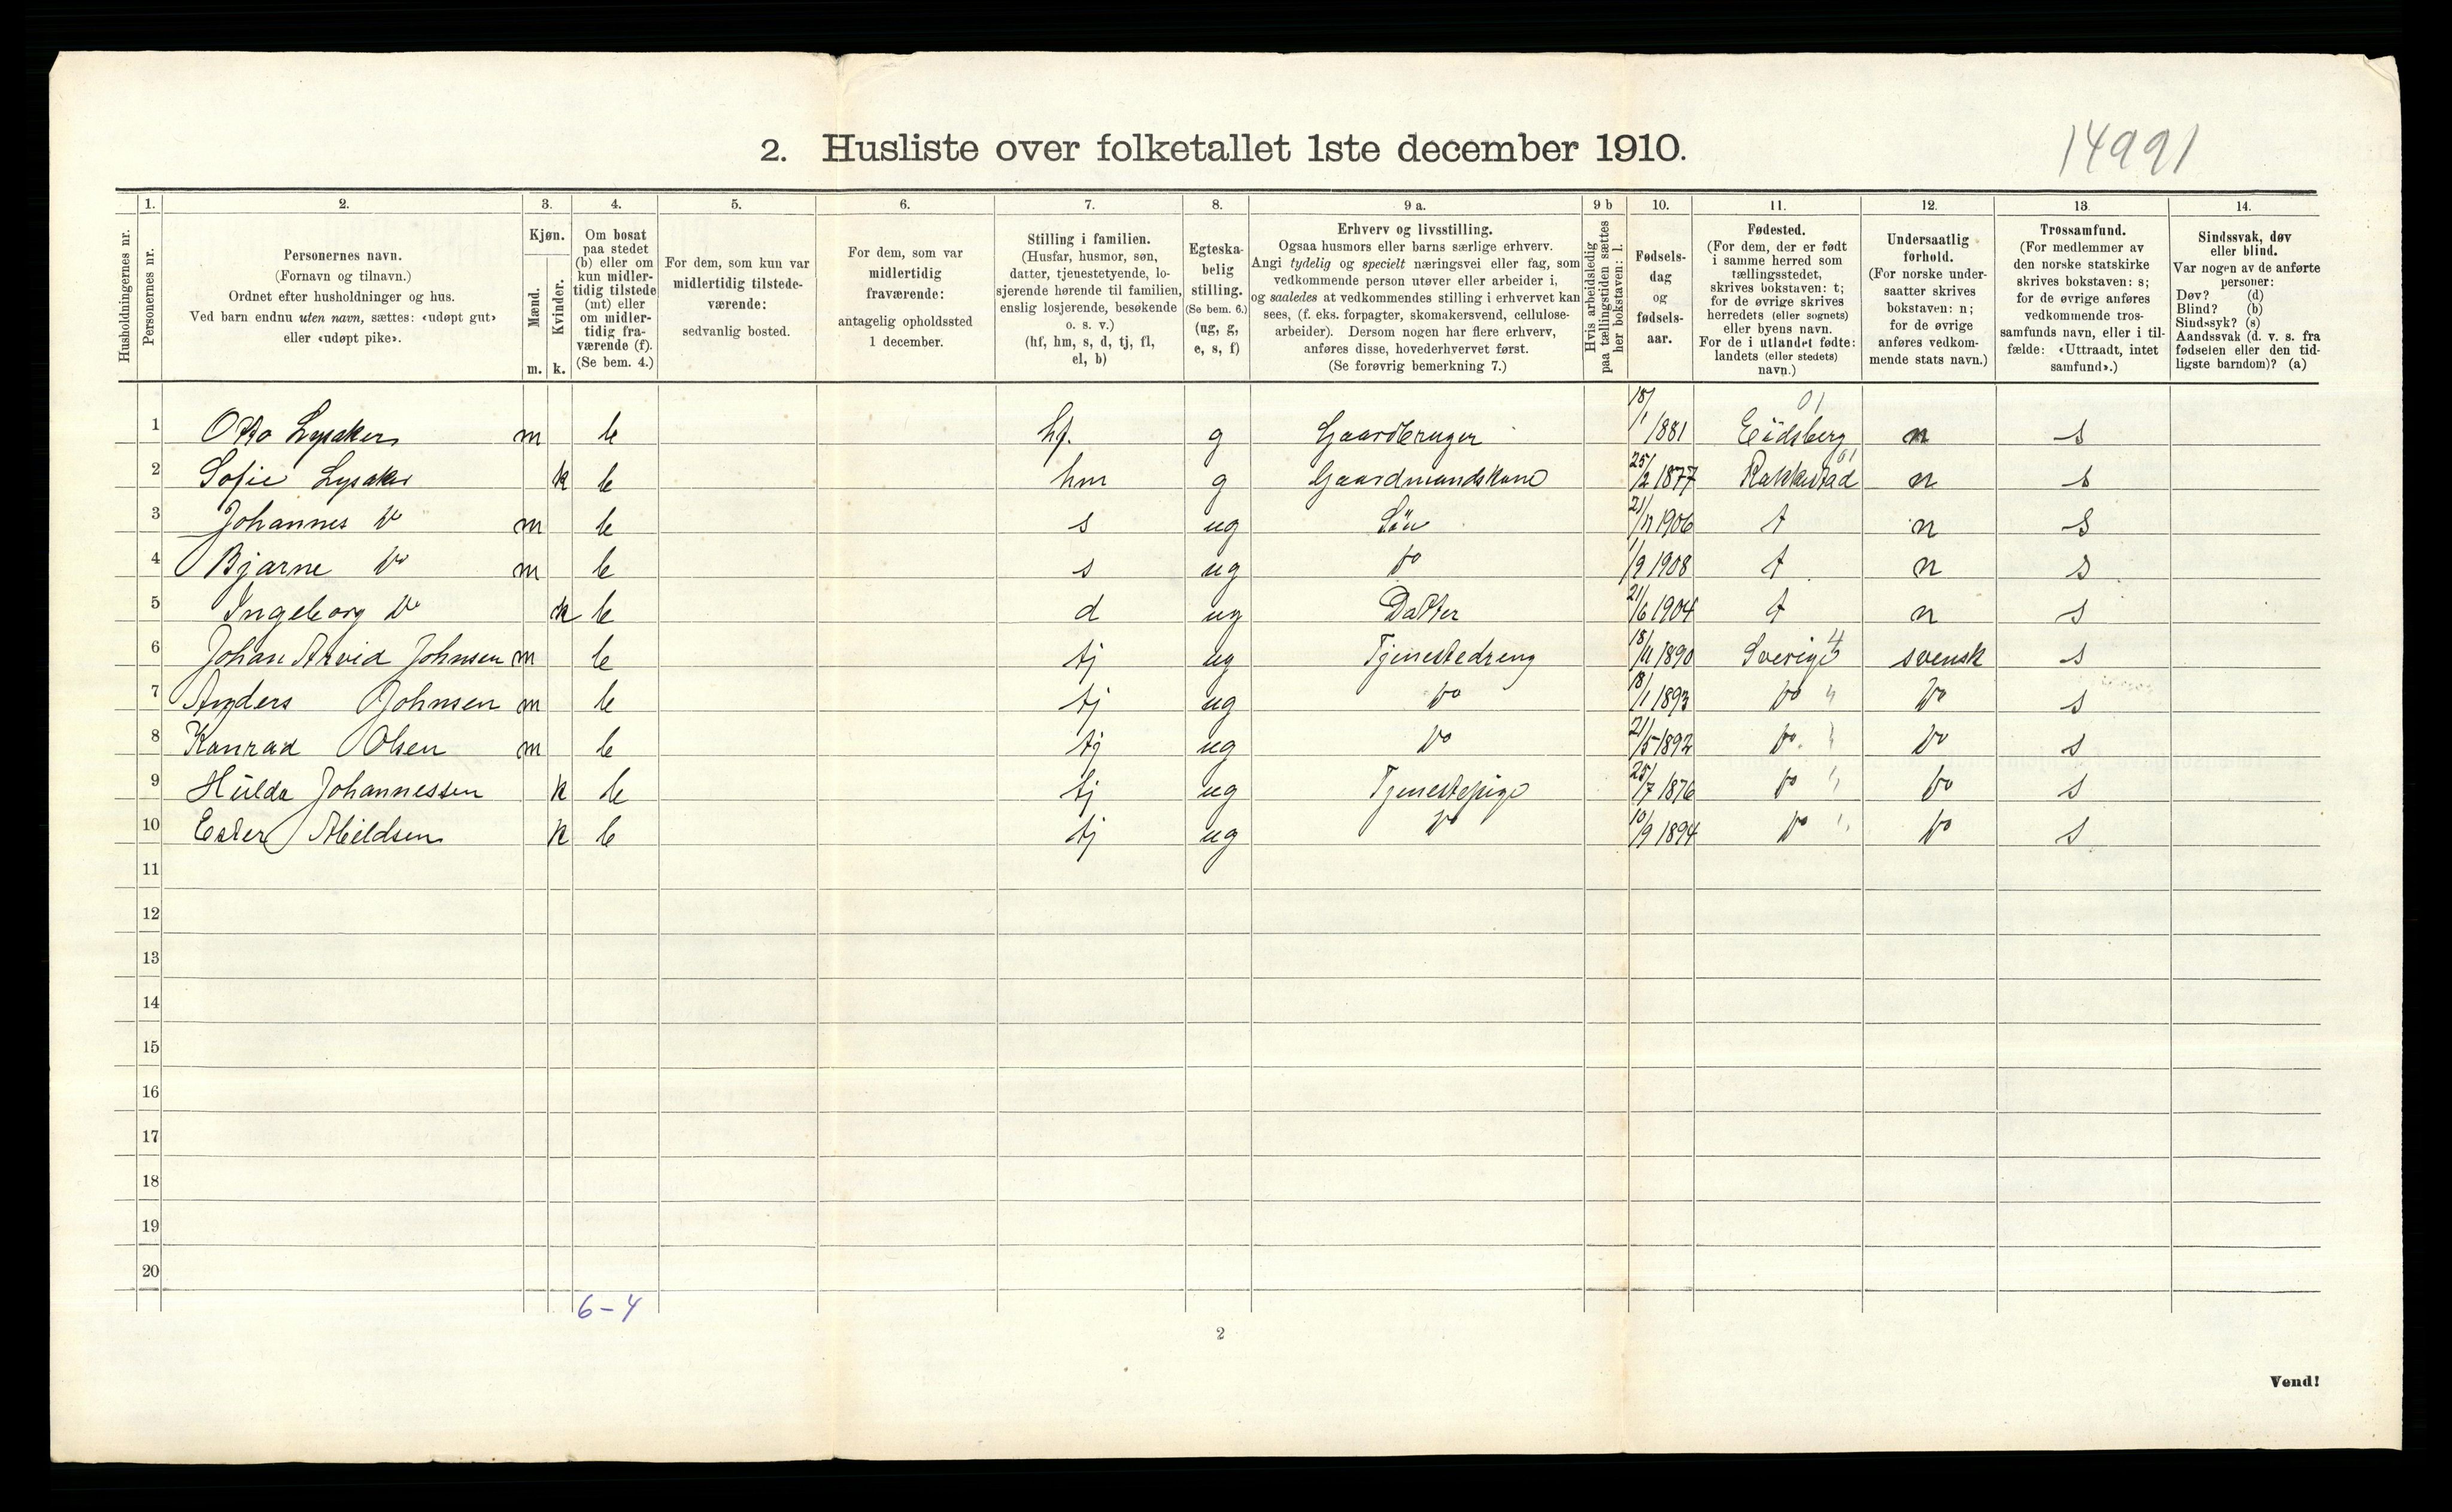 14991
2. Husliste over folketallet 1ste december 1910.
1. 2. 3. 4. 5. 6. 7. 8. 9 a. 9 b 10. 11. 12. 13. 14.
Husholdningernes nr.
Personernes nr.
Personernes navn.
(Fornavn og tilnavn.)
Ordnet efter husholdninger og hus.
Ved barn endnu uten navn, sættes: «udøpt gut»
eller «udøpt pike».
Kjøn.
Mænd.
Kvinder.
m. k.
Om bosat
paa stedet
(b) eller om
kun midler-
tidig tilstede
(mt) eller
om midler-
tidig fra-
værende (f).
(Se bem. 4.)
For dem, som kun var
midlertidig tilstede-
værende:
sedvanlig bosted.
For dem, som var
midlertidig
fraværende:
antagelig opholdssted
1 december.
Stilling i familien.
(Husfar, husmor, søn,
datter, tjenestetyende, lo-
sjerende hørende til familien,
enslig losjerende, besøkende
o. s. v.)
(hf, hm, s, d, tj, fl,
el, b)
Egteska-
belig
stilling.
(Se bem. 6.)
(ug, g,
e, s, f)
Erhverv og livsstilling.
Ogsaa husmors eller barns særlige erhverv.
Angi tydelig og specielt næringsvei eller fag, som
vedkommende person utøver eller arbeider i,
og saaledes at vedkommendes stilling i erhvervet kan
sees, (f. eks. forpagter, skomakersvend, cellulose-
arbeider). Dersom nogen har flere erhverv,
anføres disse, hovederhvervet først.
(Se forøvrig bemerkning 7.)
Hvis arbeidsledig
paa tællingstiden sættes
her bokstaven: l.
Fødsels-
dag
og
fødsels-
aar.
Fødested.
(For dem, der er født
i samme herred som
tællingsstedet,
skrives bokstaven: t;
for de øvrige skrives
herredets (eller sognets)
eller byens navn.
For de i utlandet fødte:
landets (eller stedets)
navn.)
Undersaatlig
forhold.
(For norske under-
saatter skrives
bokstaven: n;
for de øvrige
anføres vedkom-
mende stats navn.)
Trossamfund.
(For medlemmer av
den norske statskirke
skrives bokstaven: s;
for de øvrige anføres
vedkommende tros-
samfunds navn, eller i til-
fælde: «Uttraadt, intet
samfund».)
Sindssvak, døv
eller blind.
Var nogen av de anførte
personer:
Døv? (d)
Blind? (b)
Sindssyk? (s)
Aandssvak (d. v. s. fra
fødselen eller den tid-
ligste barndom)? (a)
1 Otto Lysaker m b hf. g Gaardbruger 18/1 1881 Eidsberg 01 n s
2 Sofie Lysaker k b hm g Gaardmandskone 25/2 1877 Rakkestad 01 n s
3 Johannes Do m b s ug Sön 21/11 1906 t n s
4 Bjarne Do m b s ug Do 1/9 1908 t n s
5 Ingeborg Do k b d ug Datter 21/6 1904 t n s
6 Johan Arvid Johnsen m b tj ug Tjenestedreng 18/11 1890 Sverige 4 svensk s
7 Anders Johnsen m b tj ug Do 18/1 1893 Do " Do s
8 Konrad Olsen m b tj ug Do 21/5 1892 Do " Do s
9 Hulda Johannessen k b tj ug Tjenestepige 25/7 1876 Do " Do s
10 Ester k b tj ug Do 10/9 1894 Do " Do s
11
12
13
14
15
16
17
18
19
20
6-4
2
Vend!